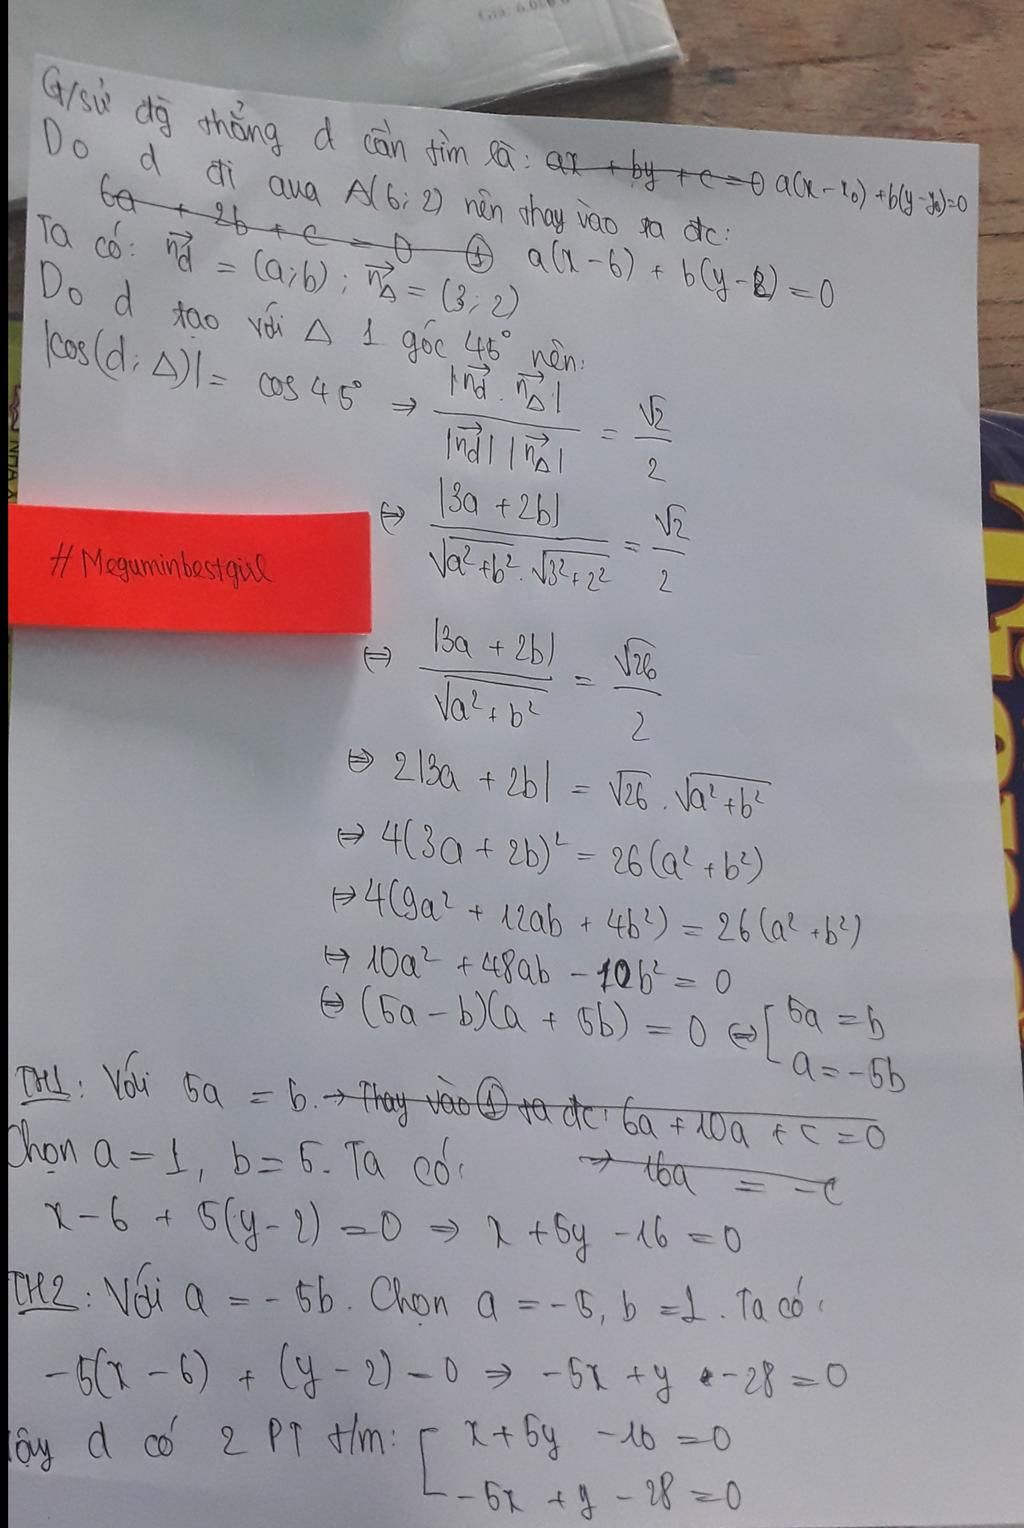 Giá: 6.000 đ
G/sử đg thẳng d cần tìm là: ax + by + c = 0 a(x-x₀) + b(y-y₀)=0
Do d đi qua A(6; 2) nên thay vào ta đc:
6a + 2b + c = 0 ① a(x-6) + b(y-2) = 0
Ta có: n⃗d = (a; b); n⃗Δ = (3; 2)
Do d tạo với Δ 1 góc 45° nên:
|cos(d; Δ)| = cos 45° ⇒ |n⃗d . n⃗Δ| / |n⃗d| |n⃗Δ| = √2 / 2
⇔ |3a + 2b| / √(a²+b²) . √(3²+2²) = √2 / 2
# Meguminbestgirl
⇔ |3a + 2b| / √(a²+b²) = √26 / 2
⇔ 2|3a + 2b| = √26 . √(a²+b²)
⇔ 4(3a + 2b)² = 26(a² + b²)
⇔ 4(9a² + 12ab + 4b²) = 26(a² + b²)
⇔ 10a² + 48ab - 10b² = 0
⇔ (5a - b)(a + 5b) = 0 ⇔ [ 5a = b
a = -5b
TH1: Với 5a = b. → Thay vào ① ta đc: 6a + 10a + c = 0
Chọn a = 1, b = 5. Ta có: ⇒ 16a = -c
x - 6 + 5(y - 2) = 0 ⇒ x + 5y - 16 = 0
TH2: Với a = -5b. Chọn a = -5, b = 1. Ta có:
-5(x - 6) + (y - 2) = 0 ⇒ -5x + y - 28 = 0
Vậy d có 2 PT t/m: [ x + 5y - 16 = 0
-5x + y - 28 = 0